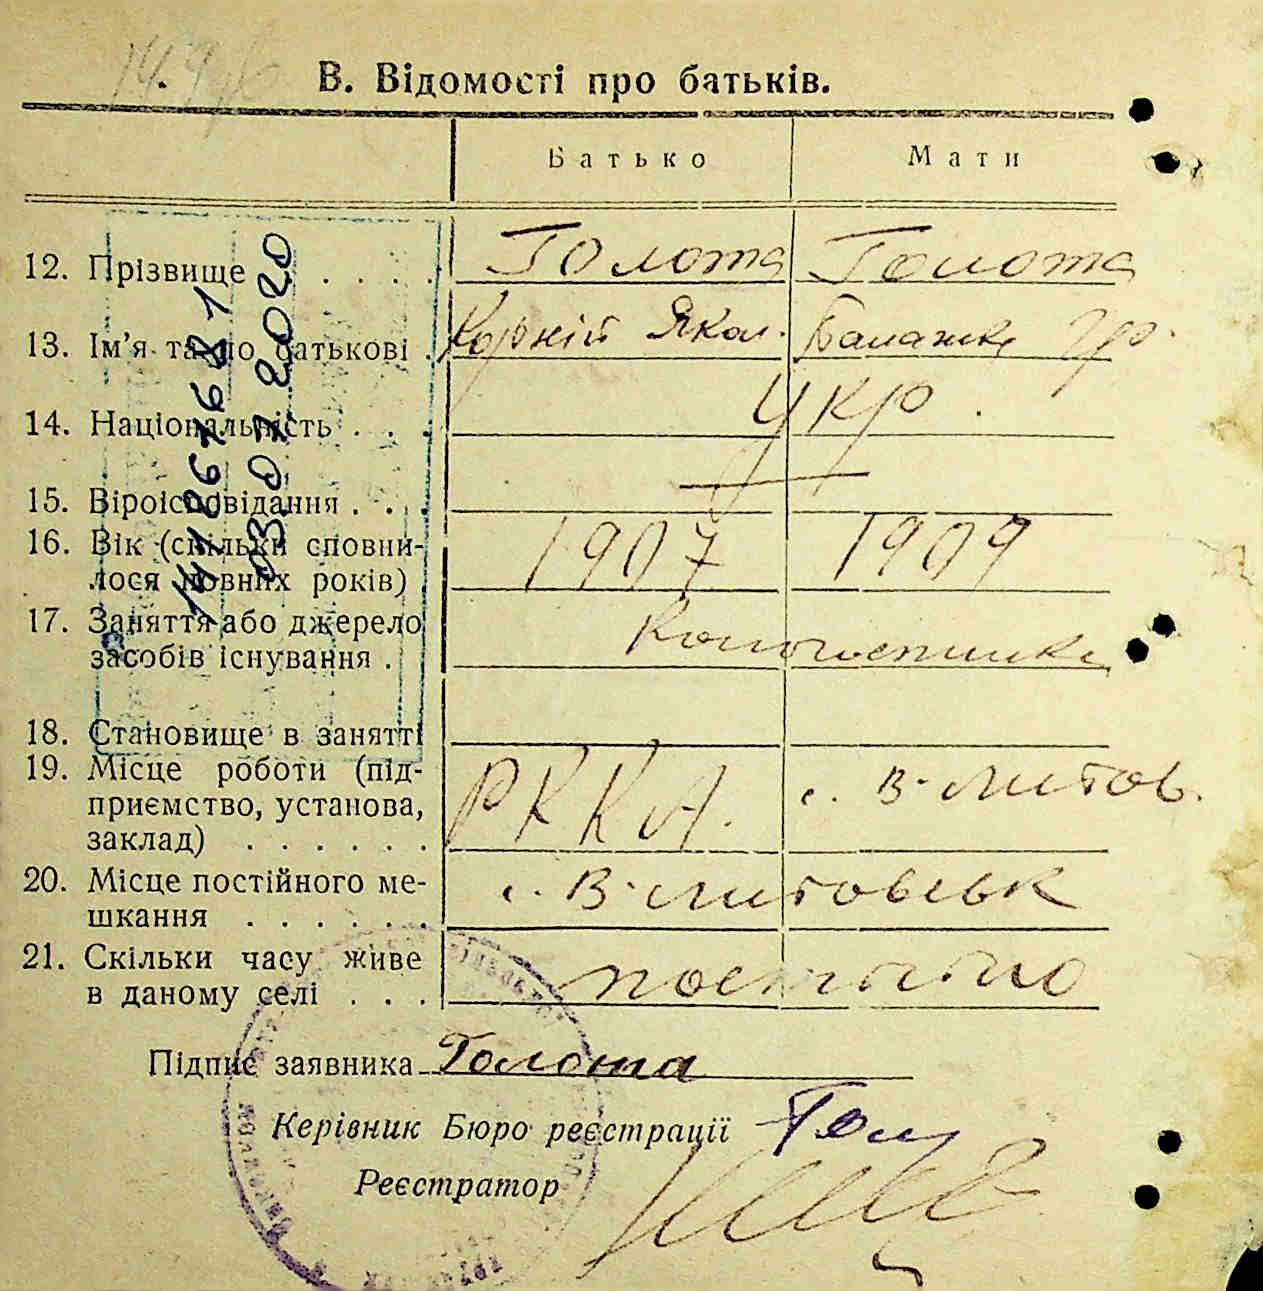 В. Відомості про батьків.
Батько Мати
12. Прізвище . . . . Голота Голота
13. Ім'я та по батькові . Корній Якол. Палажка Гр.
14. Національність . . . укр.
15. Віроісповідання . . . —
16. Вік (скільки сповни-
лося повних років) 1907 1909
17. Заняття або джерело
засобів існування . Колгоспники
18. Становище в занятті
19. Місце роботи (під-
приємство, установа,
заклад) . . . . . . РККА. с. В-Литов.
20. Місце постійного ме-
шкання . . . . . . с. В-Литовськ
21. Скільки часу живе
в даному селі . . . постійно
Підпис заявника Голота
Керівник Бюро реєстрації Гол
Реєстратор
03.07.2020